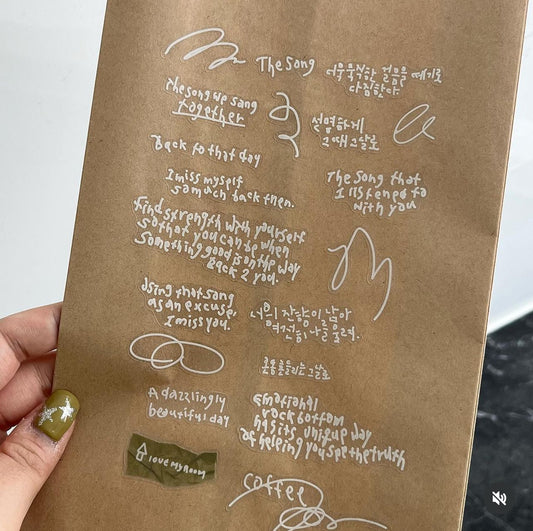 The Song
어루묵직한 걸음을 떼기로
다짐한다
the song we sang
together
선명하게
그때 그날로
Back to that day
I miss myself
so much back then.
The song that
I listened to
with you
Find strength with yourself
so that you can be when
Something good is on the way
Back 2 you.
Using that song
as an excuse,
I miss you.
너의 잔향이 남아
여전히 나를 울려.
그날로
A dazzlingly
beautiful day
Emotional
rock bottom
has its unique way
of helping you see the truth
love my room
coffee